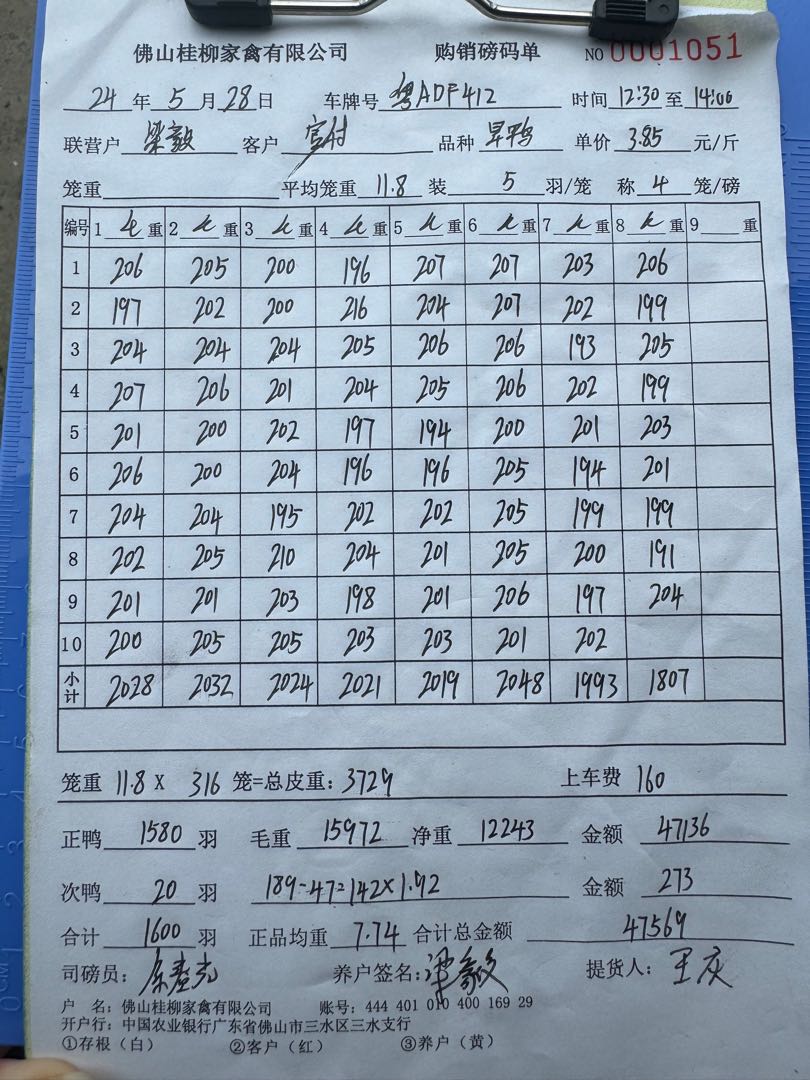 佛山桂柳家禽有限公司 购销磅码单 NO 0001051
24 年 5 月 28 日 车牌号 粤ADF412 时间 12:30 至 14:00
联营户 梁毅 客户 品种 旱鸭 单价 3.85 元/斤
笼重 平均笼重 11.8 装 5 羽/笼 称 4 笼/磅
编号 1 重 2 重 3 重 4 重 5 重 6 重 7 重 8 重 9 重
1 206 205 200 196 207 207 203 206
2 197 202 200 216 204 207 202 199
3 204 204 204 205 206 206 193 205
4 207 206 201 204 205 206 202 199
5 201 200 202 197 194 200 201 203
6 206 200 204 196 196 205 194 201
7 204 204 195 202 202 205 199 199
8 202 205 210 204 201 205 200 191
9 201 201 203 198 201 206 197 204
10 200 205 205 203 203 201 202
小计 2028 2032 2024 2021 2019 2048 1993 1807
笼重 11.8 X 316 笼=总皮重: 3729 上车费 160
正鸭 1580 羽 毛重 15972 净重 12243 金额 47136
次鸭 20 羽 189-47=142×1.92 金额 273
合计 1600 羽 正品均重 7.74 合计总金额 47569
司磅员: 养户签名: 梁毅 提货人: 王庆
户 名: 佛山桂柳家禽有限公司 账号: 444 401 010 400 169 29
开户行: 中国农业银行广东省佛山市三水区三水支行
①存根（白） ②客户（红） ③养户（黄）